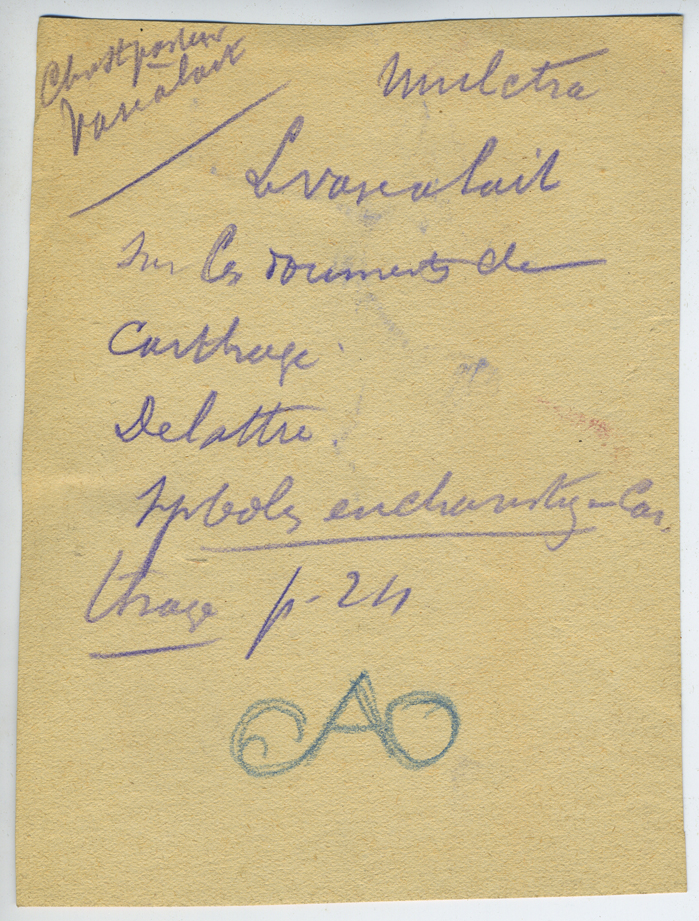 Christ pasteur
Vase à lait
Mulctra
Le vase à lait
sur les monuments de
Carthage.
Delattre.
Symboles eucharistiq-Car
thage p-24
CAO